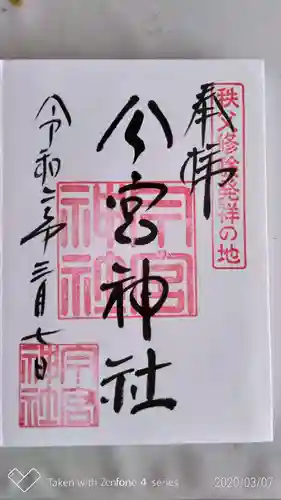 奉拝
秩父修験発祥の地
今宮神社
今宮神社
令和二年三月七日
今宮神社
Taken with Zenfone 4 series
2020/03/07